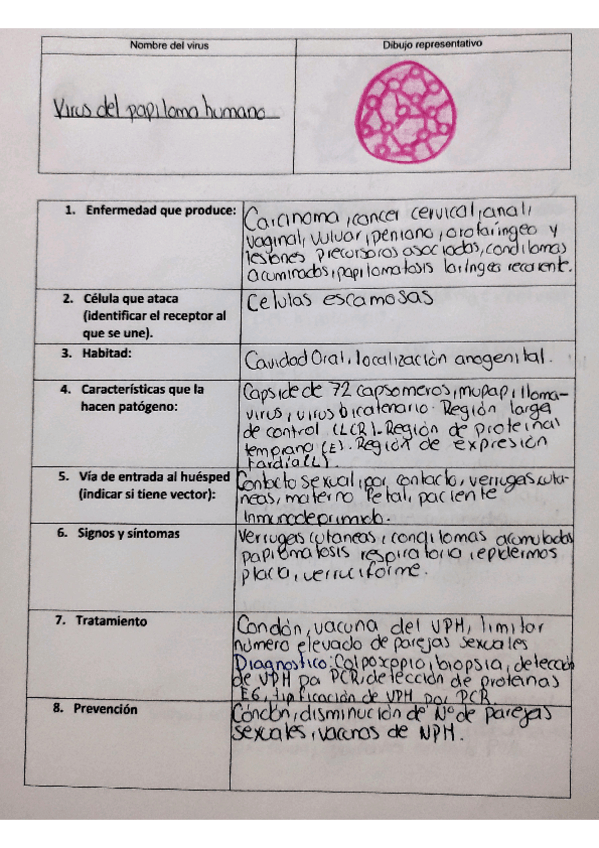 Nombre del virus
Dibujo representativo
Virus del papiloma humano
1. Enfermedad que produce:
Carcinoma, cancer cervical, anal,
vaginal, vulvar, peniano, orofaringeo y
lesiones precursoros asociados, condilomas
acuminados, papilomatosis laringea recurente.
2. Célula que ataca
(identificar el receptor al
que se une).
Celulas escamosas
3. Habitad:
Cavidad Oral, localización anogenital.
4. Características que la
hacen patógeno:
Capside de 72 capsomeros, mupapilloma-
virus, virus bicatenario. Región larga
de control (LCR). Región de proteinas
temprano (E). Región de expresión
tardia (L).
5. Vía de entrada al huésped
(indicar si tiene vector):
Contacto sexual, por contacto, verrugas cuta-
neas, materno fetal, paciente
Inmunodeprimido.
6. Signos y síntomas
Verrugas cutaneas, condilomas acumulados
papilomatosis respiratoria, epidermos
placa, verruciforme.
7. Tratamiento
Condón, vacuna del VPH, limitar
número elevado de parejas sexuales
Diagnostico: biopsia,
de VPH por PCR, detección de proteínas
E6, tipificación de VPH por PCR.
8. Prevención
Cóndon, disminución de Nº de parejas
sexuales, vacunas de NPH.